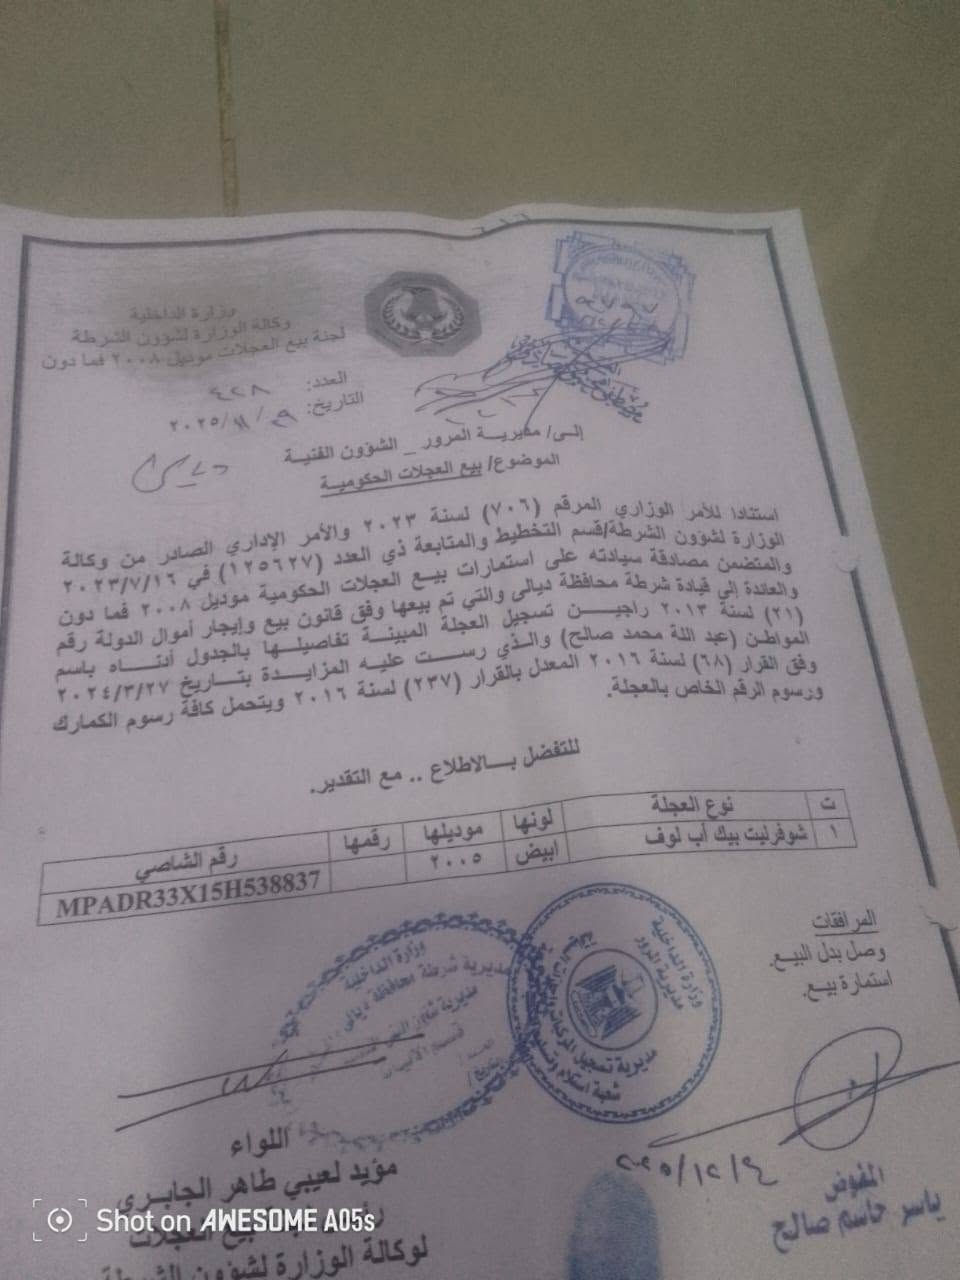 وزارة الداخلية
وكالة الوزارة لشؤون الشرطة
لجنة بيع العجلات موديل ٢٠٠٨ فما دون
العدد: ٤٢٨
التاريخ: ٢٩ / ١١ / ٢٠٢٥
إلى/ مديرية المرور _ الشؤون الفنية
الموضوع/ بيع العجلات الحكومية
استنادا للأمر الوزاري المرقم (٧٠٦) لسنة ٢٠٢٣ والأمر الإداري الصادر من وكالة
الوزارة لشؤون الشرطة/قسم التخطيط والمتابعة ذي العدد (١٢٥٦٢٧) في ٢٠٢٣/٧/١٦
والمتضمن مصادقة سيادته على استمارات بيع العجلات الحكومية موديل ٢٠٠٨ فما دون
والعائدة إلى قيادة شرطة محافظة ديالى والتي تم بيعها وفق قانون بيع وإيجار أموال الدولة رقم
(٢١) لسنة ٢٠١٣ راجين تسجيل العجلة المبينة تفاصيلها بالجدول أدناه باسم
المواطن (عبد اللة محمد صالح) والذي رست عليه المزايدة بتاريخ ٢٠٢٤/٣/٢٧
وفق القرار (٦٨) لسنة ٢٠١٦ المعدل بالقرار (٢٣٧) لسنة ٢٠١٦ ويتحمل كافة رسوم الكمارك
ورسوم الرقم الخاص بالعجلة.
للتفضل بالاطلاع .. مع التقدير.
ت نوع العجلة لونها موديلها رقمها رقم الشاصي
١ شوفرليت بيك أب لوف ابيض ٢٠٠٥ MPADR33X15H538837
المرافقات
وصل بدل البيع.
استمارة بيع.
وزارة الداخلية
مديرية المرور
مديرية تسجيل المركبات
وزارة الداخلية
مديرية شرطة محافظة ديالى
قسم الآليات
العدد /
التاريخ /
٢٠٢٥/١٢/٤
المفوض
ياسر جاسم صالح
اللواء
مؤيد لعيبي طاهر الجابري
بيع العجلات
لوكالة الوزارة لشؤون الشرطة
Shot on AWESOME A05s